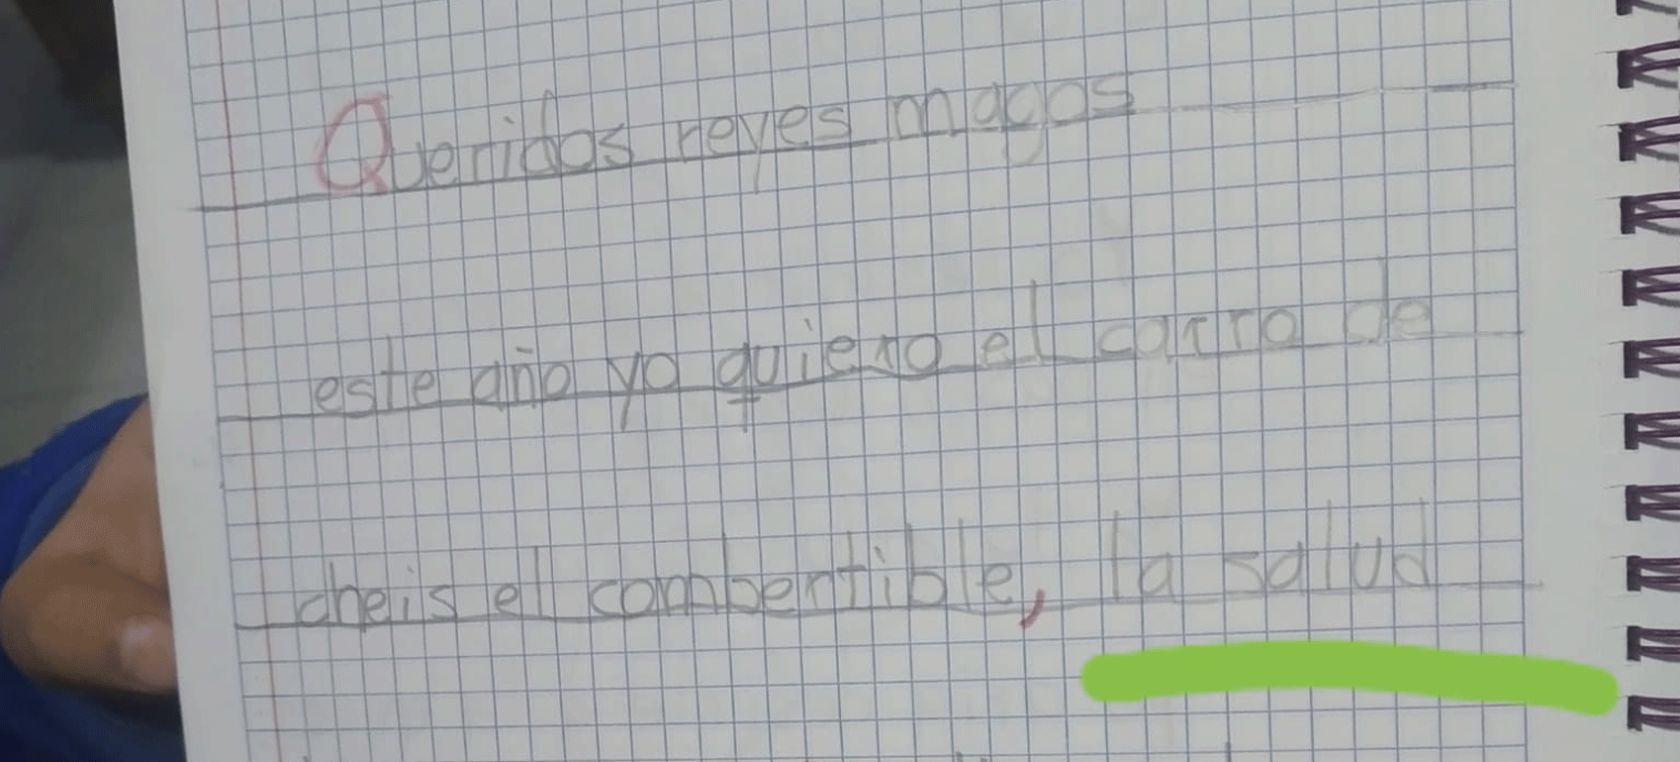 Queridos reyes magos
este año yo quiero el carro de
cheis el combertible, la salud